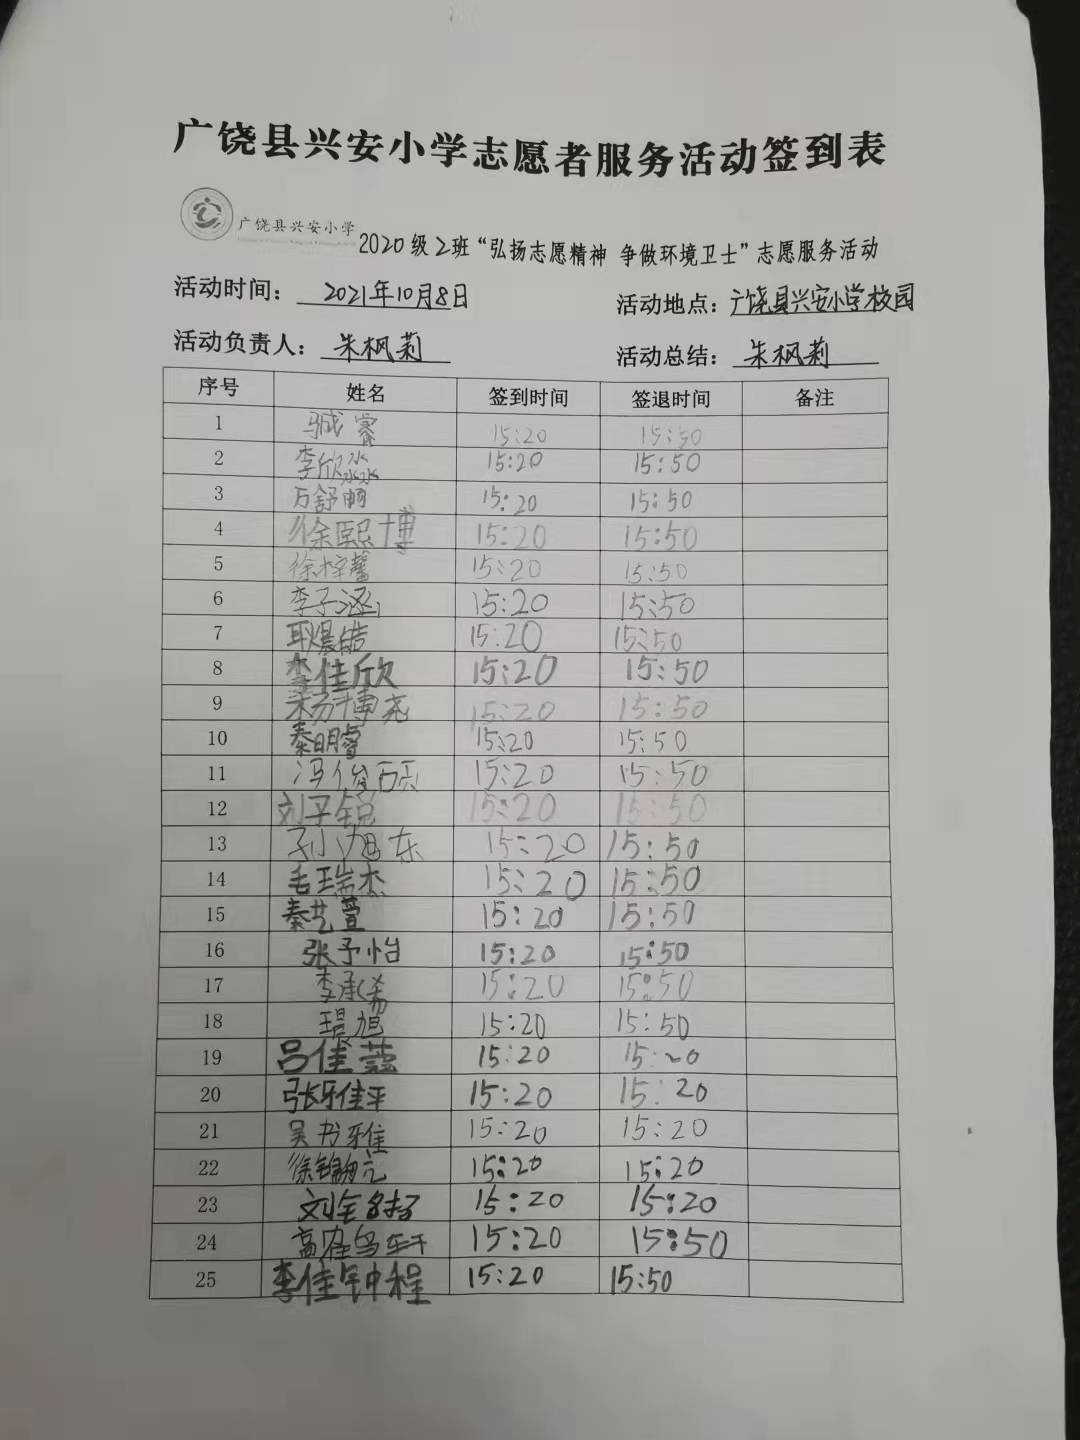 广饶县兴安小学志愿者服务活动签到表
广饶县兴安小学
2020级2班“弘扬志愿精神 争做环境卫士”志愿服务活动
活动时间：2021年10月8日 活动地点：广饶县兴安小学校园
活动负责人：朱枫莉 活动总结：朱枫莉
序号 姓名 签到时间 签退时间 备注
1 15:20 15:50
2 李欣淼 15:20 15:50
3 万舒 15:20 15:50
4 徐熙博 15:20 15:50
5 徐梓馨 15:20 15:50
6 李子涵 15:20 15:50
7 15:20 15:50
8 李佳欣 15:20 15:50
9 杨博尧 15:20 15:50
10 秦明睿 15:20 15:50
11 冯俊硕 15:20 15:50
12 刘子锐 15:20 15:50
13 孙旭东 15:20 15:50
14 毛瑞杰 15:20 15:50
15 秦艺萱 15:20 15:50
16 张予怡 15:20 15:50
17 李承希 15:20 15:50
18 15:20 15:50
19 吕佳蕊 15:20 15:20
20 张雅平 15:20 15:20
21 吴书雅 15:20 15:20
22 徐锦元 15:20 15:20
23 刘 15:20 15:20
24 高 15:20 15:50
25 李佳钟程 15:20 15:50